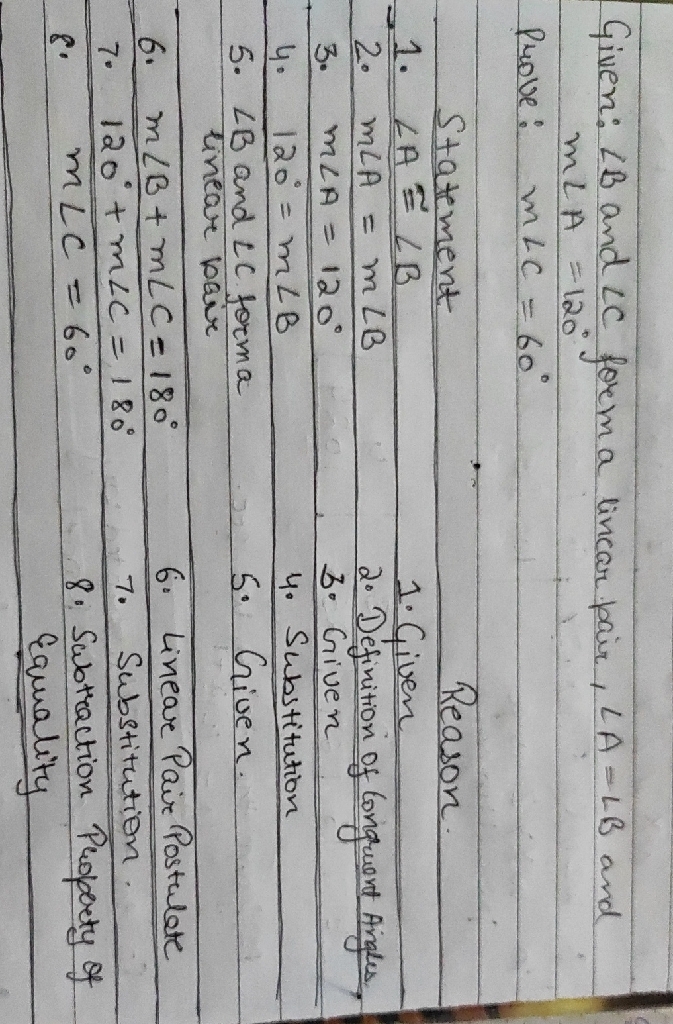 Given: ∠B and ∠C form a linear pair, ∠A = ∠B and
m∠A = 120°
Prove: m∠C = 60°
Statement Reason.
1. ∠A ≅ ∠B 1. Given
2. m∠A = m∠B 2. Definition of Congruent Angles
3. m∠A = 120° 3. Given
4. 120° = m∠B 4. Substitution
5. ∠B and ∠C form a 5. Given.
linear pair
6. m∠B + m∠C = 180° 6. Linear Pair Postulate
7. 120° + m∠C = 180° 7. Substitution.
8. m∠C = 60° 8. Subtraction Property of
Equality